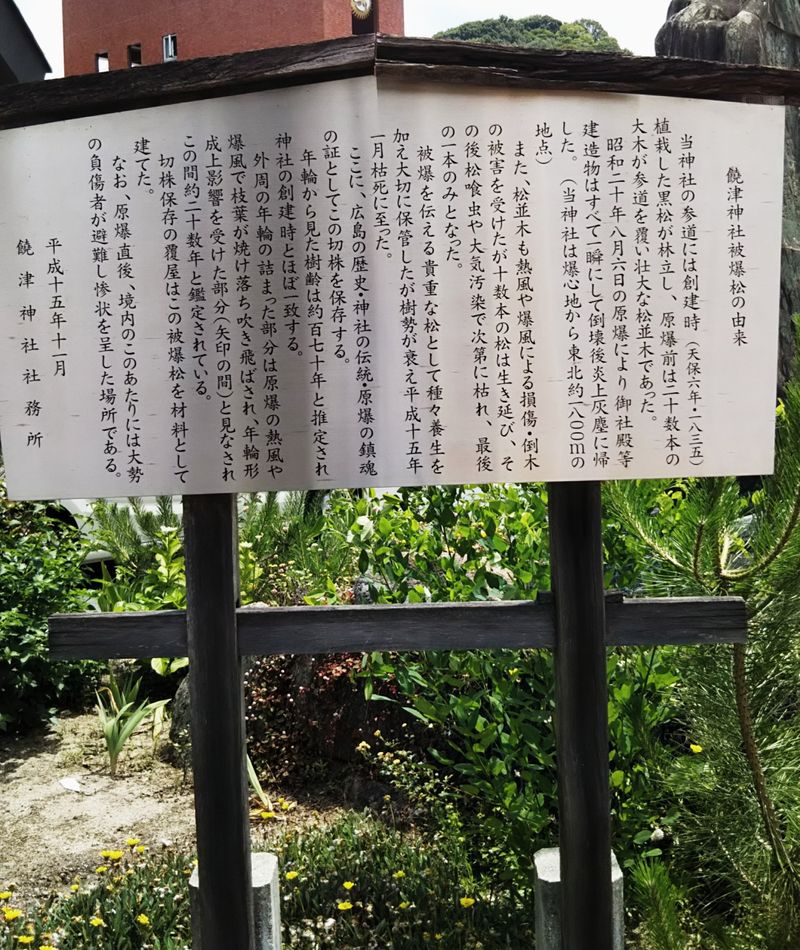 饒津神社被爆松の由来
当神社の参道には創建時（天保六年・一八三五）
植栽した黒松が林立し、原爆前は二十数本の
大木が参道を覆い壮大な松並木であった。
昭和二十年八月六日の原爆により御社殿等
建造物はすべて一瞬にして倒壊後炎上灰塵に帰
した。（当神社は爆心地から東北約一八〇〇mの
地点）
また、松並木も熱風や爆風による損傷・倒木
の被害を受けたが十数本の松は生き延び、そ
の後松喰虫や大気汚染で次第に枯れ、最後
の一本のみとなった。
被爆を伝える貴重な松として種々養生を
加え大切に保管したが樹勢が衰え平成十五年
一月枯死に至った。
ここに、広島の歴史・神社の伝統・原爆の鎮魂
の証としてこの切株を保存する。
年輪から見た樹齢は約百七十年と推定され
神社の創建時とほぼ一致する。
外周の年輪の詰まった部分は原爆の熱風や
爆風で枝葉が焼け落ち吹き飛ばされ、年輪形
成上影響を受けた部分（矢印の間）と見なされ
この間約二十数年と鑑定されている。
切株保存の覆屋はこの被爆松を材料として
建てた。
なお、原爆直後、境内のこのあたりには大勢
の負傷者が避難し惨状を呈した場所である。
平成十五年十一月
饒津神社社務所